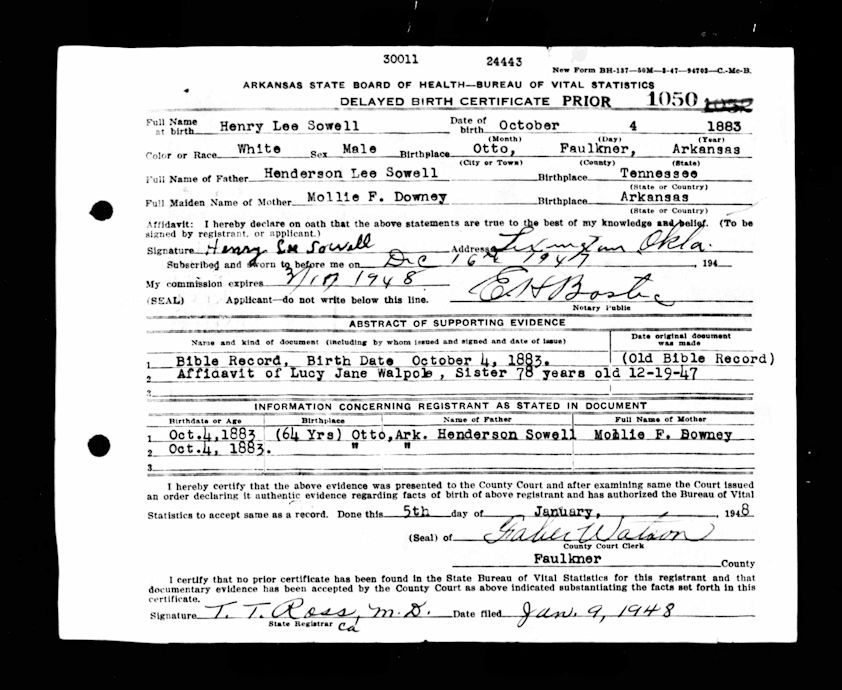 30011 24443
New Form BH-137—50M—3-47—94703—C.-Mc-B.
ARKANSAS STATE BOARD OF HEALTH—BUREAU OF VITAL STATISTICS
DELAYED BIRTH CERTIFICATE PRIOR 1050 1032
Full Name at birth Henry Lee Sowell Date of birth October 4 1883
(Month) (Day) (Year)
Color or Race White Sex Male Birthplace Otto, Faulkner, Arkansas
(City or Town) (County) (State)
Full Name of Father Henderson Lee Sowell Birthplace Tennessee
(State or Country)
Full Maiden Name of Mother Mollie F. Downey Birthplace Arkansas
(State or Country)
Affidavit: I hereby declare on oath that the above statements are true to the best of my knowledge and belief. (To be
signed by registrant, or applicant.)
Signature Henry Lee Sowell Address Lexington Okla.
Subscribed and sworn to before me on Dec 16th 1947 194
My commission expires 1948 E H Bostic
(SEAL) Applicant—do not write below this line. Notary Public
ABSTRACT OF SUPPORTING EVIDENCE
Name and kind of document (including by whom issued and signed and date of issue) Date original document was made
1 Bible Record, Birth Date October 4, 1883. (Old Bible Record)
2 Affidavit of Lucy Jane Walpole, Sister 78 years old 12-19-47
3
INFORMATION CONCERNING REGISTRANT AS STATED IN DOCUMENT
Birthdate or Age Birthplace Name of Father Full Name of Mother
1 Oct.4,1883 (64 Yrs) Otto,Ark. Henderson Sowell Mollie F. Downey
2 Oct.4, 1883. " "
3
I hereby certify that the above evidence was presented to the County Court and after examining same the Court issued
an order declaring it authentic evidence regarding facts of birth of above registrant and has authorized the Bureau of Vital
Statistics to accept same as a record. Done this 5th day of January, 1948
(Seal) of Faber Watson
County Court Clerk
Faulkner County
I certify that no prior certificate has been found in the State Bureau of Vital Statistics for this registrant and that
documentary evidence has been accepted by the County Court as above indicated substantiating the facts set forth in this
certificate.
Signature T. T. Ross, M.D. Date filed Jan. 9, 1948
State Registrar
Ca